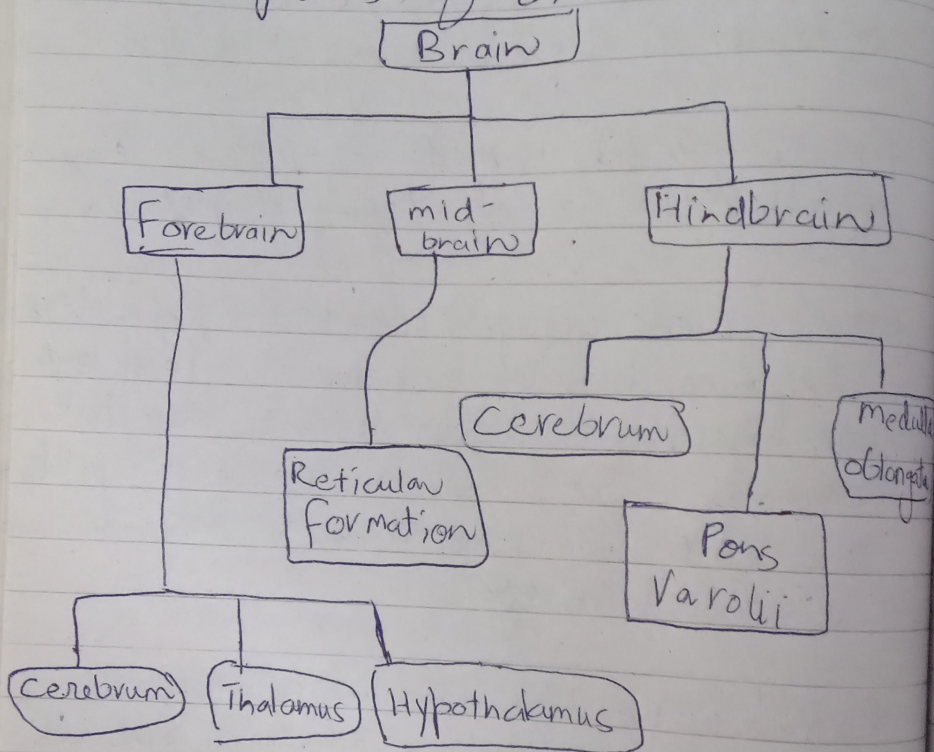 Brain
Forebrain
mid-
brain
Hindbrain
Cerebrum
Medulla
oblongata
Reticular
formation
Pons
Varolii
Cerebrum
Thalamus
Hypothalamus